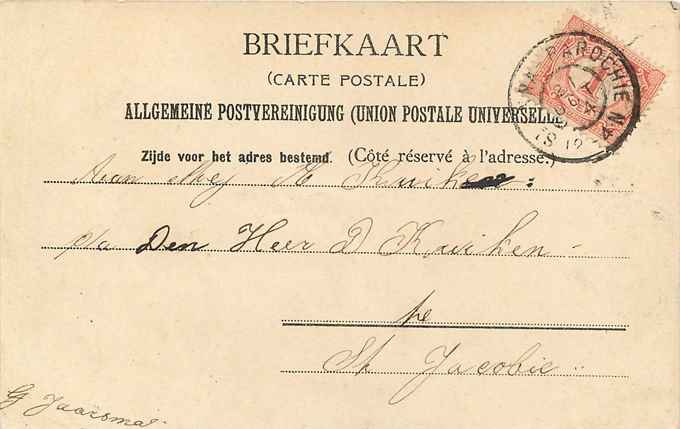 BRIEFKAART
(CARTE POSTALE)
ALLGEMEINE POSTVEREINIGUNG (UNION POSTALE UNIVERSELLE
Zijde voor het adres bestemd. (Côté réservé à l'adresse.)
Aan Mej M Kuiken:
p/a Den Heer D Kuiken
te
St Jacobie
G Jaarsma
PAROCHIE